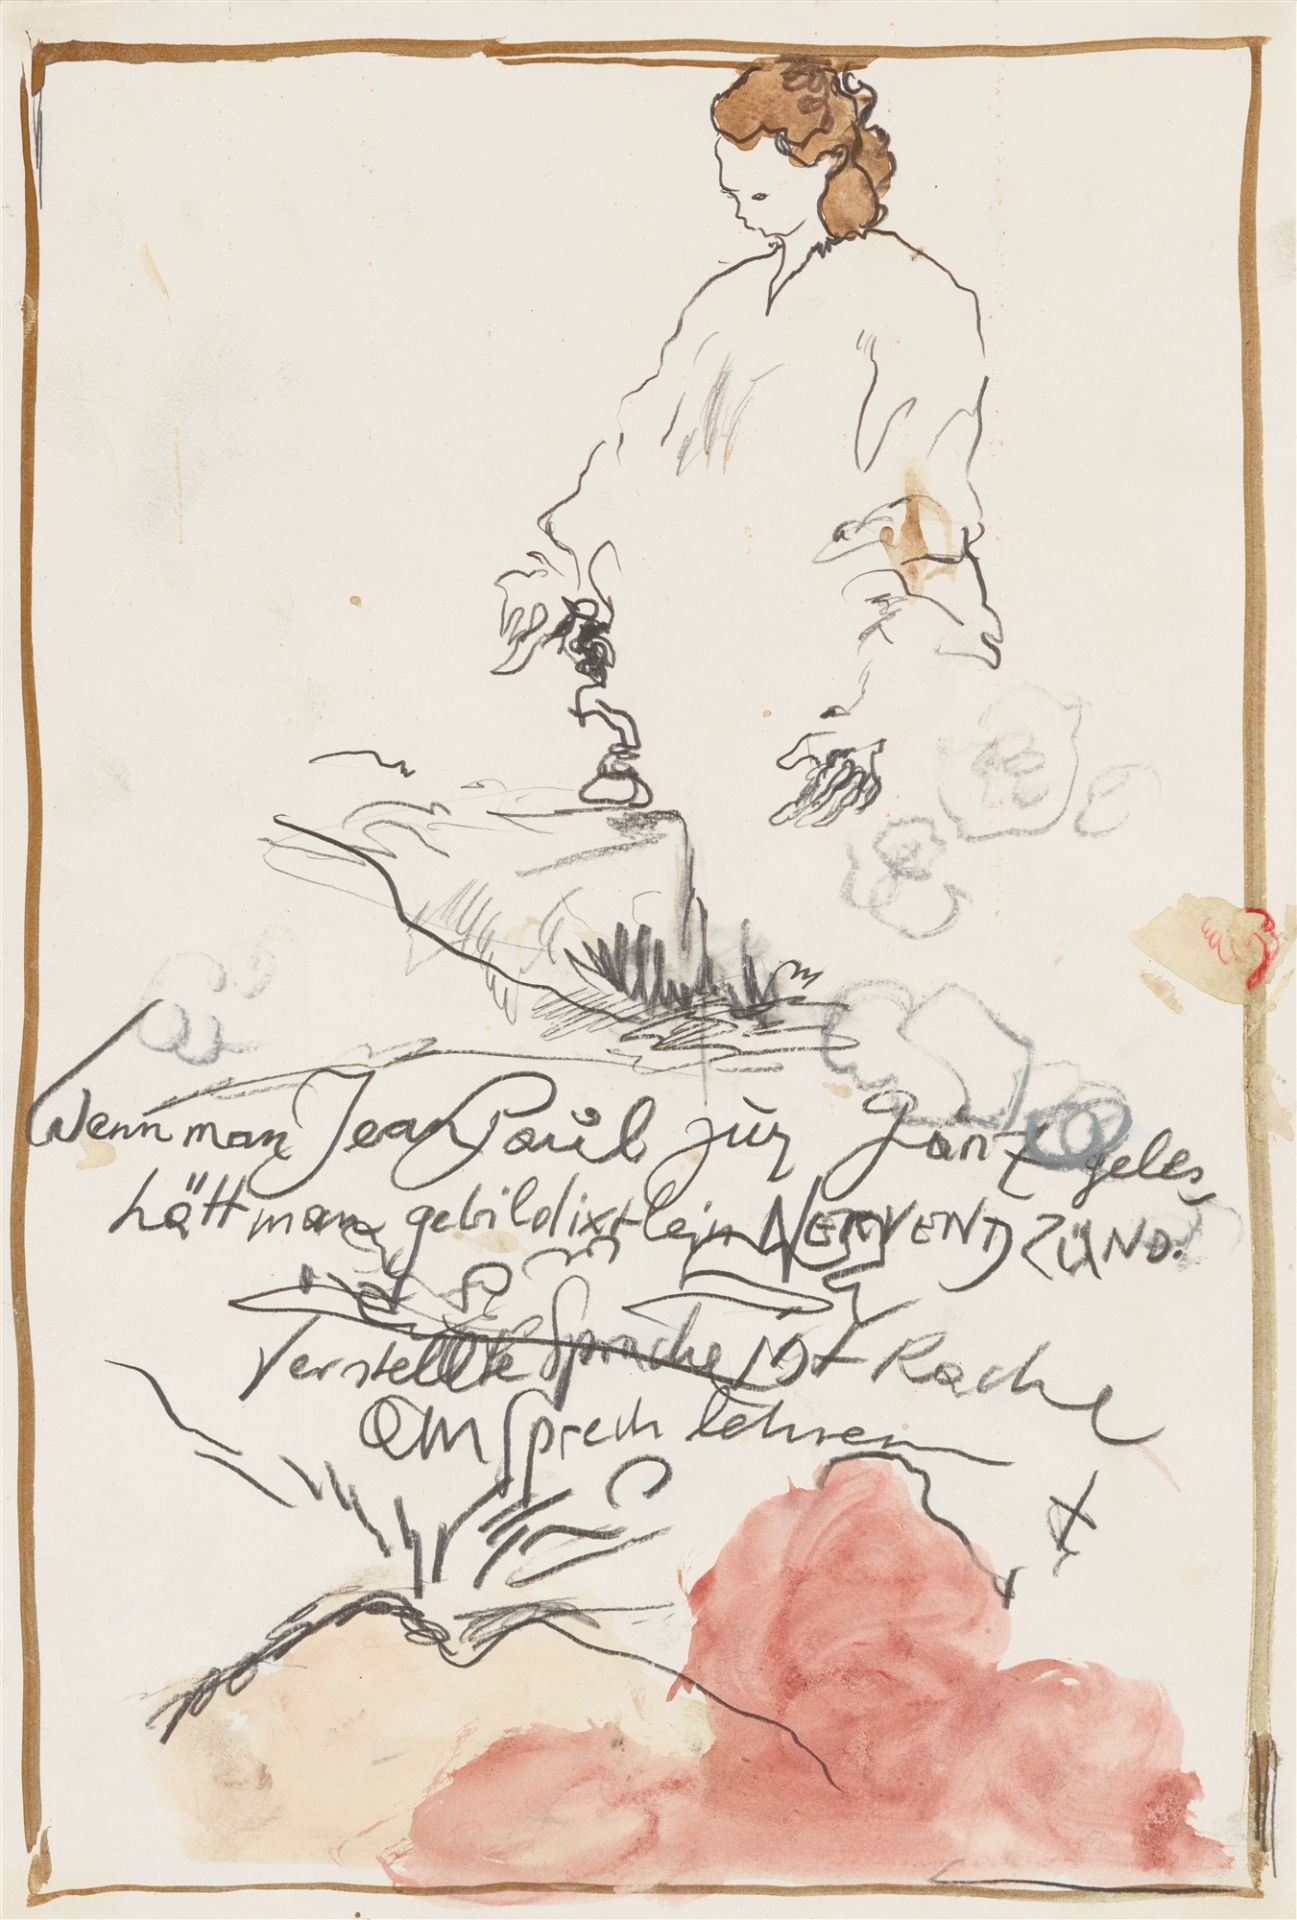 Wenn man Jean Paul zur Gänz geles,
hätt man gebildixtlein NERVENDZÜND.
Verstellte Sprache ist Rache
am Sprechlehrer